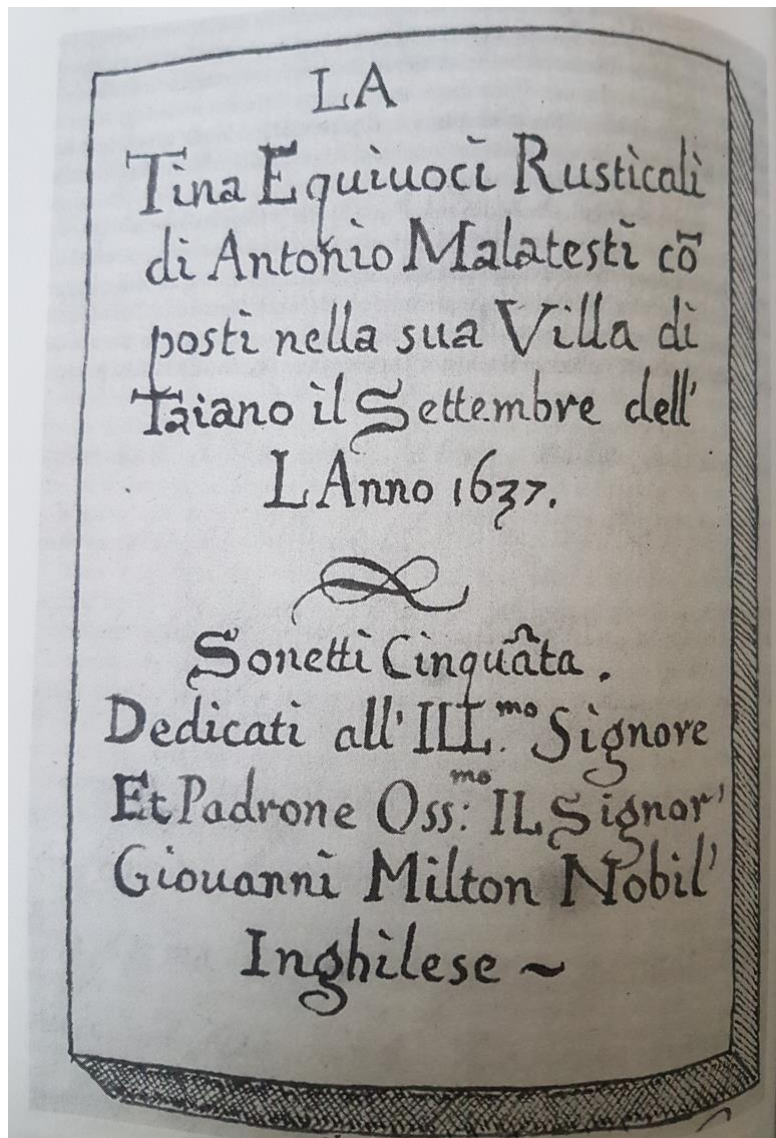 LA
Tina Equiuoci Rusticali
di Antonio Malatesti cō
posti nella sua Villa di
Taiano il Settembre dell'
L Anno 1637.
Sonetti Cinquãta.
Dedicati all' Ill.mo Signore
Et Padrone Oss:mo IL Signor'
Giouanni Milton Nobil'
Inghilese ~